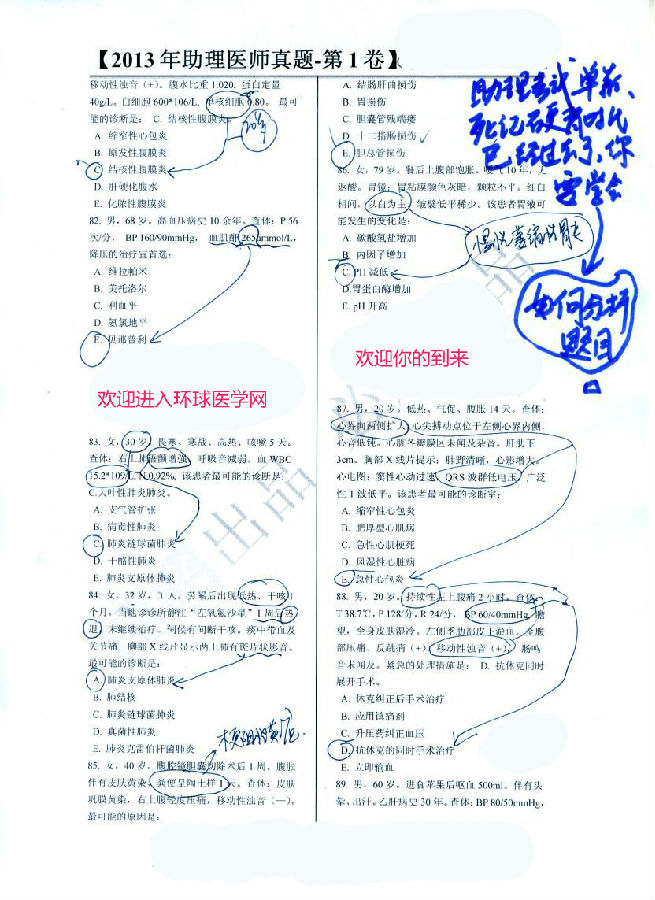 【2013年助理医师真题-第1卷】
移动性浊音(+)。腹水比重1.020,蛋白定量
40g/L。白细胞600*106/L,单核细胞0.80。最可
能的诊断是: C. 结核性腹膜炎
A. 缩窄性心包炎
B. 原发性腹膜炎
C. 结核性腹膜炎
D. 肝硬化腹水
E. 化脓性腹膜炎
82. 男,68岁,高血压病史10余年。查体:P 56
次/分, BP 160/90mmHg, 血肌酐265ummol/L,
降压的治疗宜首选:
A. 维拉帕米
B. 美托洛尔
C. 利血平
D. 氨氯地平
E. 贝那普利
欢迎进入环球医学网
83. 男,30岁,畏寒、寒战、高热、咳嗽5天。
查体:右上肺语颤增强,呼吸音减弱,血WBC
15.2*109/L,N 0.92%,该患者最可能的诊断是:
C.大叶性肺炎肺炎。
A. 支气管扩张
B. 病毒性肺炎
C. 肺炎链球菌肺炎
D. 干酪性肺炎
E. 肺炎支原体肺炎
84. 女,32岁,工人,劳累后出现低热、干咳1
个月。当地诊诊所静注“左氧氟沙星”1周后热
退,未继续治疗。何候有间断干咳,痰中带血及
关节痛。胸部X线片显示两上肺有斑片状影音,
最可能的诊断是:
A. 肺炎支原体肺炎
B. 肺结核
C. 肺炎链球菌肺炎
D. 真菌性肺炎
E. 肺炎克雷伯杆菌肺炎
85. 女,40岁,腹腔镜胆囊切除术后1周,腹胀
伴有皮肤黄染,粪便呈陶土样1天。查体:皮肤
巩膜黄染,右上腹轻度压痛,移动性浊音(—)。
最可能的原因是:
A. 结肠肝曲损伤
B. 胃损伤
C. 胆囊管残端瘘
D. 十二指肠损伤
E. 胆总管损伤
86. 女,79岁,餐后上腹部饱胀,嗳气10年,无
返酸。胃镜:胃粘膜颜色灰暗,颗粒不平。红白
相间,以白为主,皱襞低平稀少。该患者胃液可
能发生的变化是:
A. 碳酸氢盐增加
B. 内因子增加
C. PH减低
D.胃蛋白酶增加
E. pH升高
欢迎你的到来
87. 男,20岁,低热、气促、腹胀14天。查体:
心界向两侧扩大,心尖搏动点位于左侧心界内侧,
心音低钝。心脏各瓣膜区未闻及杂音,肝肋下
3cm。胸部X线片提示:肺野清晰,心影增大。
心电图:窦性心动过速,QRS波群低电压,广泛
性T波低平。该患者最可能的诊断室:
A. 缩窄性心包炎
B. 肥厚型心肌病
C. 急性心肌梗死
D. 风湿性心脏病
E. 急性心包炎
88. 男,20岁。持续性左上腹痛2小时。查体:
T 38.7℃,P 128/分,R 24/分,BP 60/40mmHg,
望,全身皮肤湿冷。左侧季肋部皮下淤血,全腹
部压痛、反跳痛(+),移动性浊音(+),肠鸣
音未闻及。紧急的处理措施是: D. 抗休克同时
展开手术。
A. 休克纠正后手术治疗
B. 应用镇痛剂
C. 升压药纠正血压
D. 抗休克的同时手术治疗
E. 立即输血
89. 男,60岁,进食苹果后呕血500ml,伴有头
晕、出汗。乙肝病史30年。查体:BP 80/50mmHg,
助理考试单靠
死记硬背的时代
已经过去了,你
要学会
如何分析
题目
慢性萎缩性胃炎
梗阻性黄疸
出品